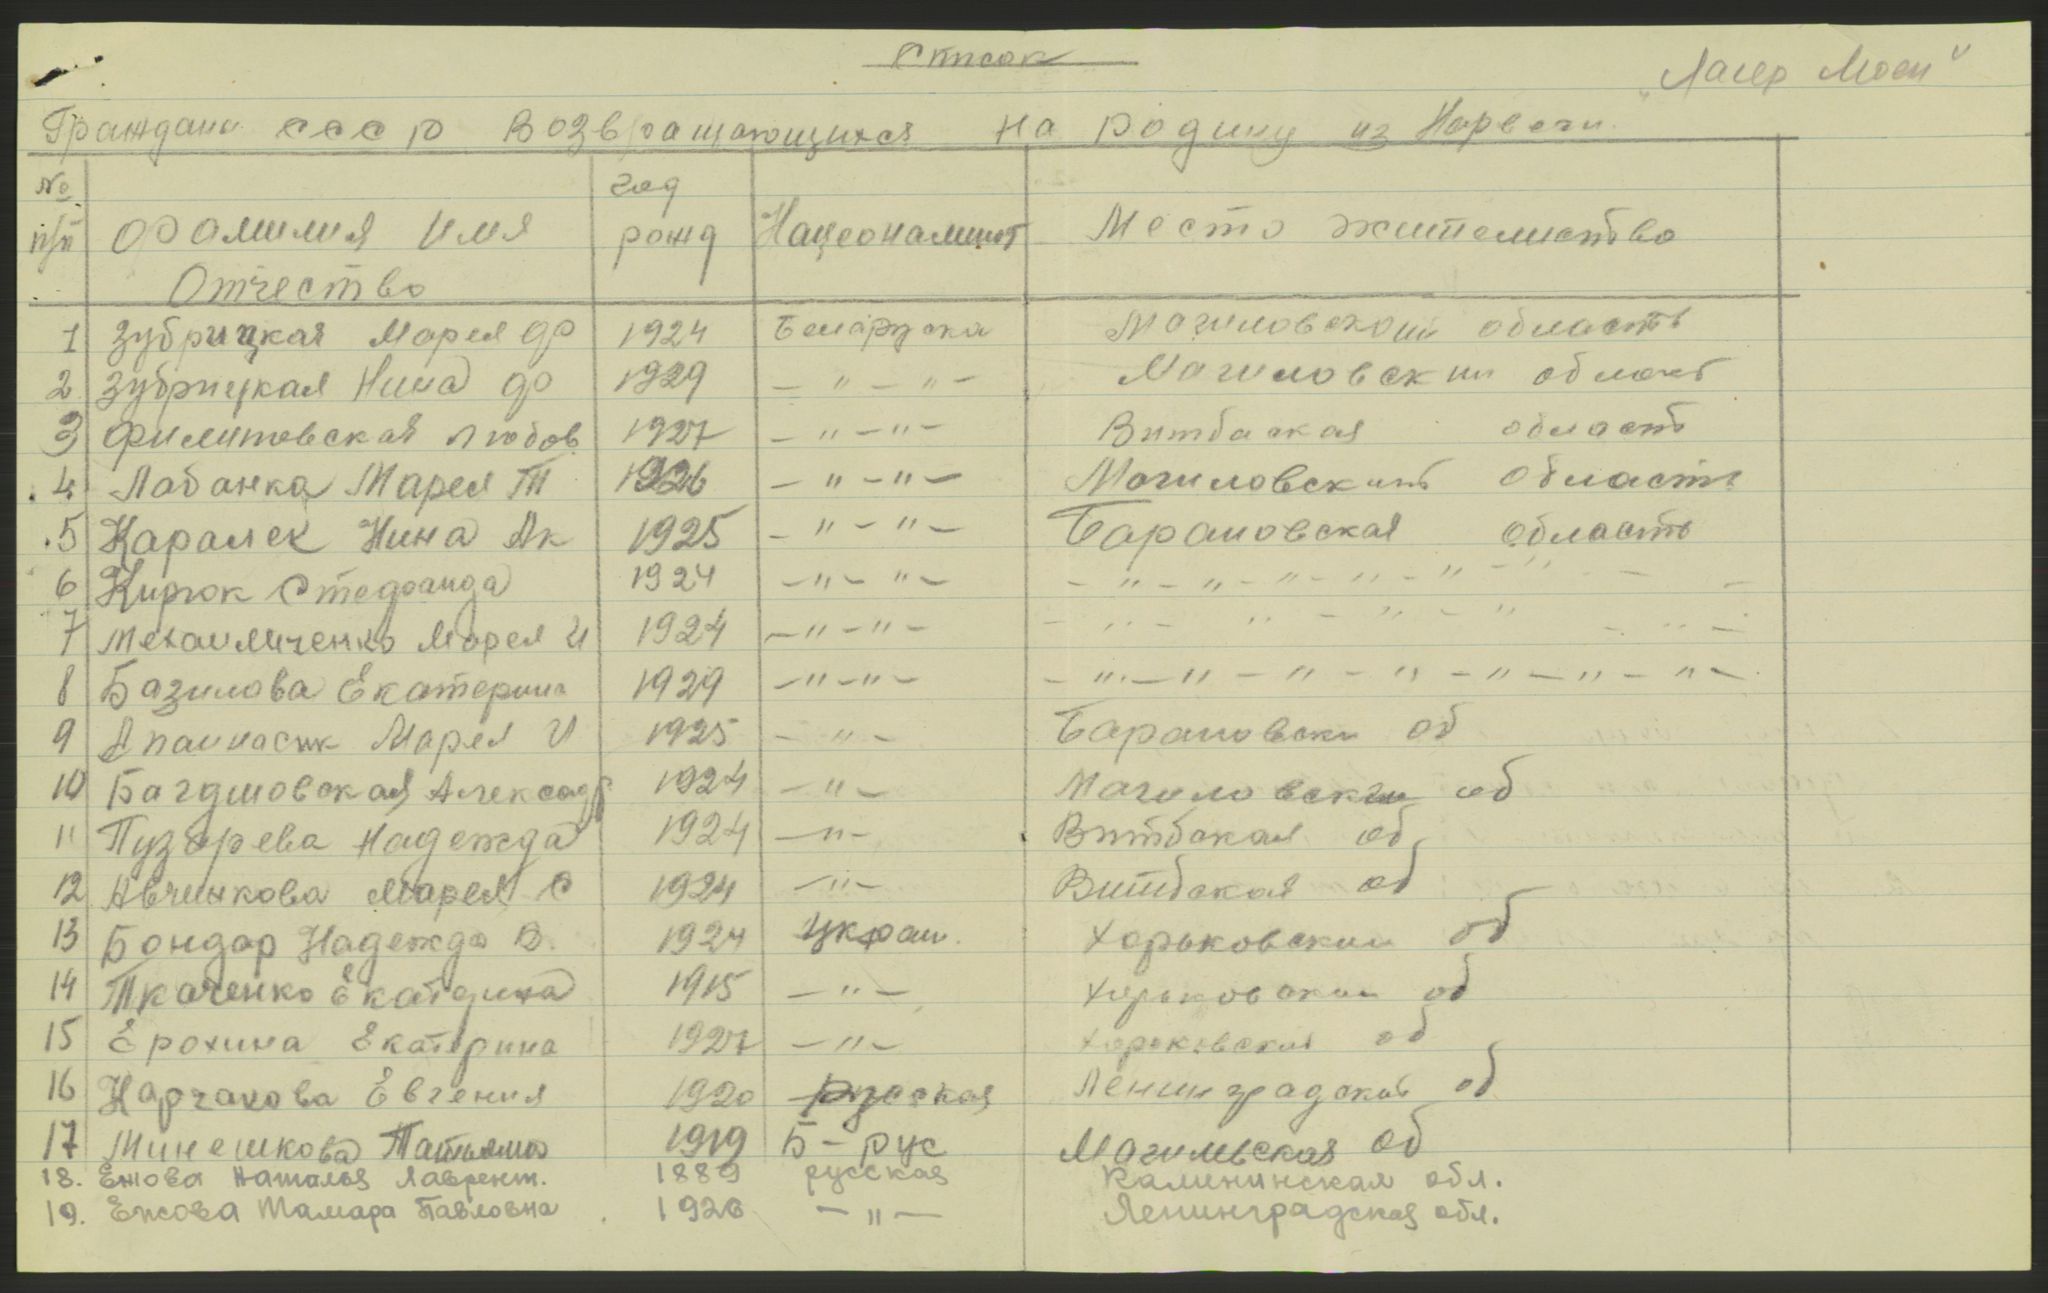 Список
„Лагер Моен"
Граждани СССР Возвращающихся на родину из Норвеги
№ п/п Фамилия Имя Отчество год рожд Нацеоналност Место жителиство
1 Зубрицкая Марея Ф 1924 Беларуска Магиловской область
2 Зубрицкая Нина Ф 1929 — " — " — Магиловский област
3 Филиповская Любов 1927 — " — " — Витбаская область
4 Лабанка Марея Т 1926 — " — " — Магиловскиъ область
5 Карамек Нина Ак 1925 — " — " — Барановская область
6 Кирюк Стефанида 1924 — " — " — — " — " — " — " — " — " — —
7 Механиченко Марея И 1924 — " — " — — " — " — " — " — " —
8 Базилова Екатерина 1929 — " — " — — " — " — " — " — " — " — " —
9 Апанасик Марея И 1925 — " — Барановски об
10 Багдановская Александр 1924 — " — Магиловски об
11 Пузырева Надежда 1924 — " — Витбская об
12 Авчинкова Марея С 1924 — " — Витбская об
13 Бондар Надежда В. 1924 Украи. Харьковский об
14 Ткаченко Екатерина 1915 — " — Харьковский об
15 Ерохина Екатерина 1927 — " — Харьковская об
16 Нарчакова Евгения 1920 русская Ленинградской об
17 Минешкова Татьяна 1919 Б – рус Магильвская об
18. Ежова Наталья Лаврент. 1889 русская Калининская обл.
19. Ежова Тамара Павловна 1926 — " — Ленинградская обл.